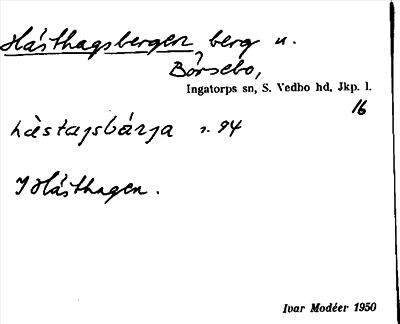 Hästhagsbergen berg n.
Börsebo,
Ingatorps sn, S. Vedbo hd, Jkp. l.
16
hästajsbärja s. 94
I Hästhagen.
Ivar Modéer 1950